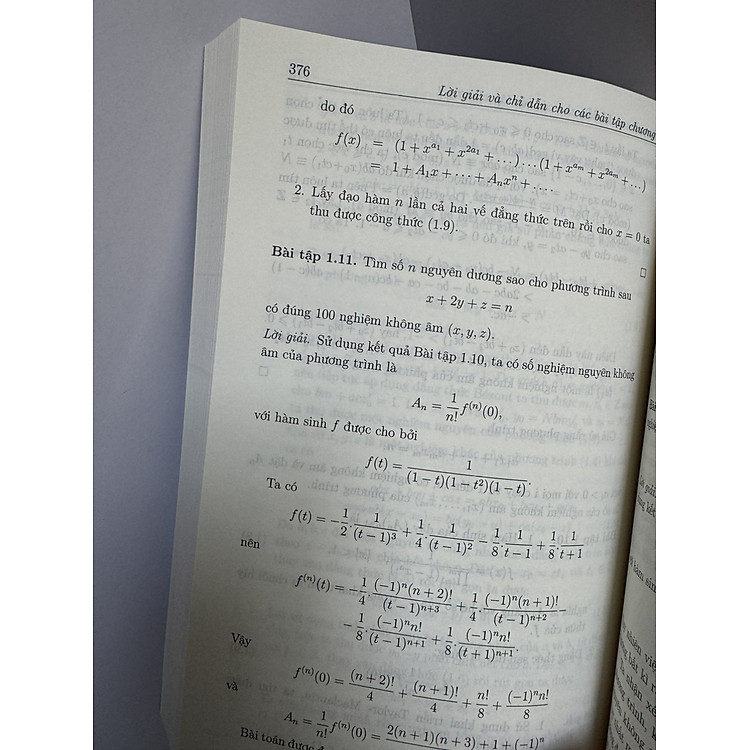 376
Lời giải và chỉ dẫn cho các bài tập chương
do đó
f(x) = (1 + x^{a_1} + x^{2a_1} + ...) ... (1 + x^{a_m} + x^{2a_m} + ...)
= 1 + A_1x + ··· + A_nx^n + ....
2. Lấy đạo hàm n lần cả hai vế đẳng thức trên rồi cho x = 0 ta
thu được công thức (1.9).
□
Bài tập 1.11. Tìm số n nguyên dương sao cho phương trình sau
x + 2y + z = n
có đúng 100 nghiệm không âm (x, y, z).
Lời giải. Sử dụng kết quả Bài tập 1.10, ta có số nghiệm nguyên không
âm của phương trình là
A_n = \frac{1}{n!} f^{(n)}(0),
với hàm sinh f được cho bởi
f(t) = \frac{1}{(1 - t)(1 - t^2)(1 - t)}.
Ta có
f(t) = -\frac{1}{2}.\frac{1}{(t - 1)^3} + \frac{1}{4}.\frac{1}{(t - 1)^2} - \frac{1}{8}.\frac{1}{t - 1} + \frac{1}{8}.\frac{1}{t + 1}
nên
f^{(n)}(t) = -\frac{1}{4}.\frac{(-1)^n(n + 2)!}{(t - 1)^{n+3}} + \frac{1}{4}.\frac{(-1)^n(n + 1)!}{(t - 1)^{n+2}} -
-\frac{1}{8}.\frac{(-1)^n n!}{(t - 1)^{n+1}} + \frac{1}{8}.\frac{(-1)^n n!}{(t + 1)^{n+1}}.
Vậy
f^{(n)}(0) = \frac{(n + 2)!}{4} + \frac{(n + 1)!}{4} + \frac{n!}{8} + \frac{(-1)^n n!}{8}
và
A_n = \frac{1}{n!} f^{(n)}(0) = 2(n + 1)(n + 3) + 1 + (-1)^n
Bài toán được